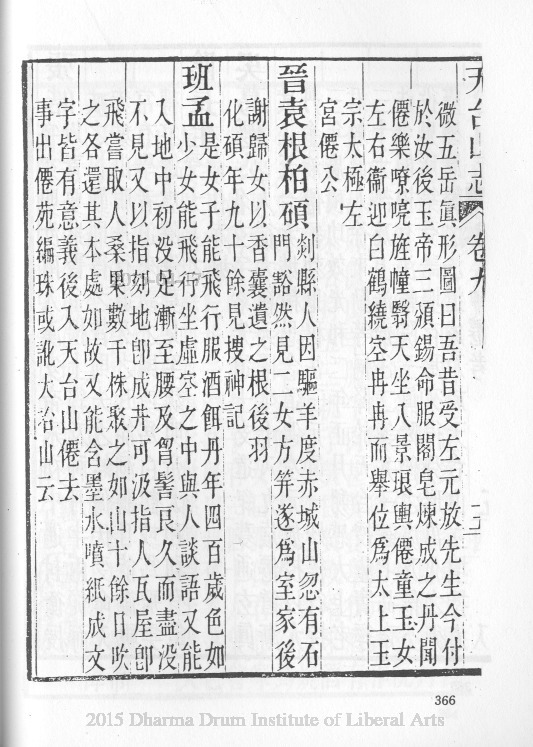 天台山志 卷九 五
微五岳眞形圖曰吾昔受左元放先生今付
於汝後玉帝三頒錫命服閤皂煉成之丹聞
僊樂嘹喨旌幢翳天坐八景琅輿僊童玉女
左右衞迎白鶴繞空冉冉而舉位爲太上玉
宗太極左
宮僊公
晉袁根柏碩剡縣人因驅羊度赤城山忽有石
門豁然見二女方笄遂爲室家後
謝歸女以香囊遺之根後羽
化碩年九十餘見搜神記
班孟是女子能飛行服酒餌丹年四百歲色如
少女能飛行坐虛空之中與人談語又能
入地中初没足漸至腰及胷髻良久而盡没
不見又以指刻地卽成井可汲指人瓦屋卽
飛嘗取人桑果數千株聚之如山十餘日吹
之各還其本處如故又能含墨水噴紙成文
字皆有意義後入天台山僊去
事出僊苑編珠或訛大冶山云
366
2015 Dharma Drum Institute of Liberal Arts